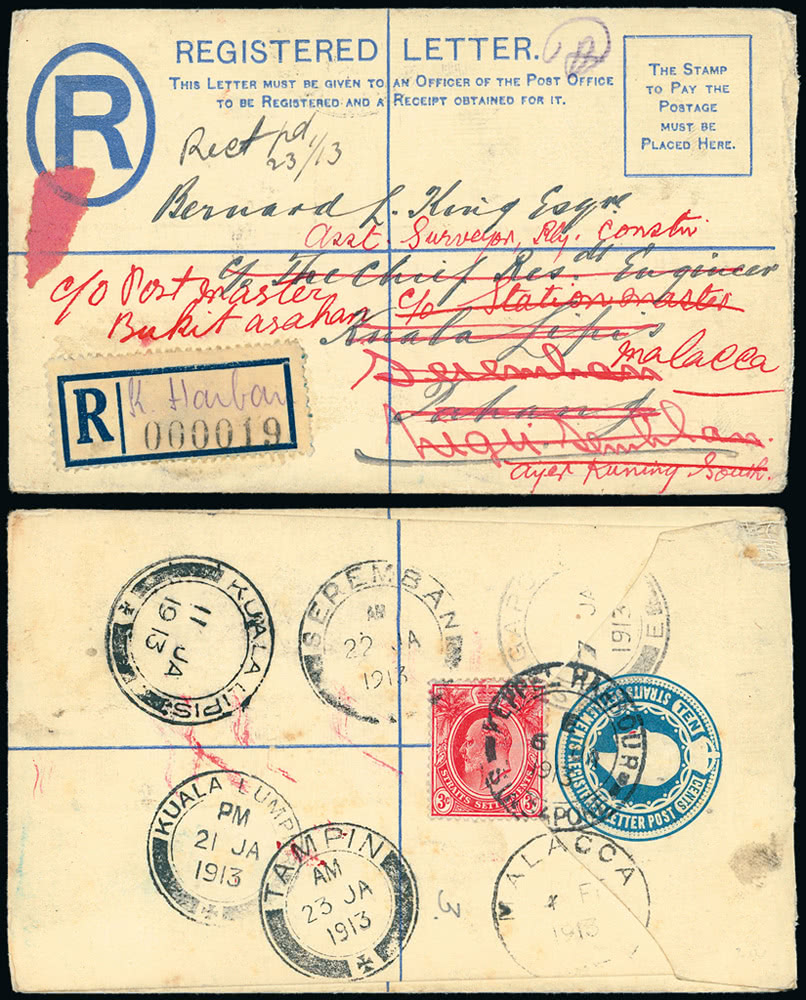 REGISTERED LETTER.
THIS LETTER MUST BE GIVEN TO AN OFFICER OF THE POST OFFICE
TO BE REGISTERED AND A RECEIPT OBTAINED FOR IT.
THE STAMP
TO PAY THE
POSTAGE
MUST BE
PLACED HERE.
R
Rect pd
23/1/13
Bernard L. King Esqre
Asst. Surveyor, Rly. Constn
c/o The Chief Res. dt Engineer
c/o Postmaster
c/o Stationmaster
Bukit asahan
Kuala Lipis
malacca
Seremban
Pahang
Negri Sembilan.
ayer Kuning South.
R
K. Harbour
000019
KUALA LIPIS
11 JA
1913
SEREMBAN
AM
22 JA
1913
JA
1913
KEPPEL HARBOUR
6
1913
STRAITS SETTLEMENTS
3c
TEN CENTS
LETTER POST
KUALA LUMP
PM
21 JA
1913
TAMPIN
AM
23 JA
1913
MALACCA
1913
3